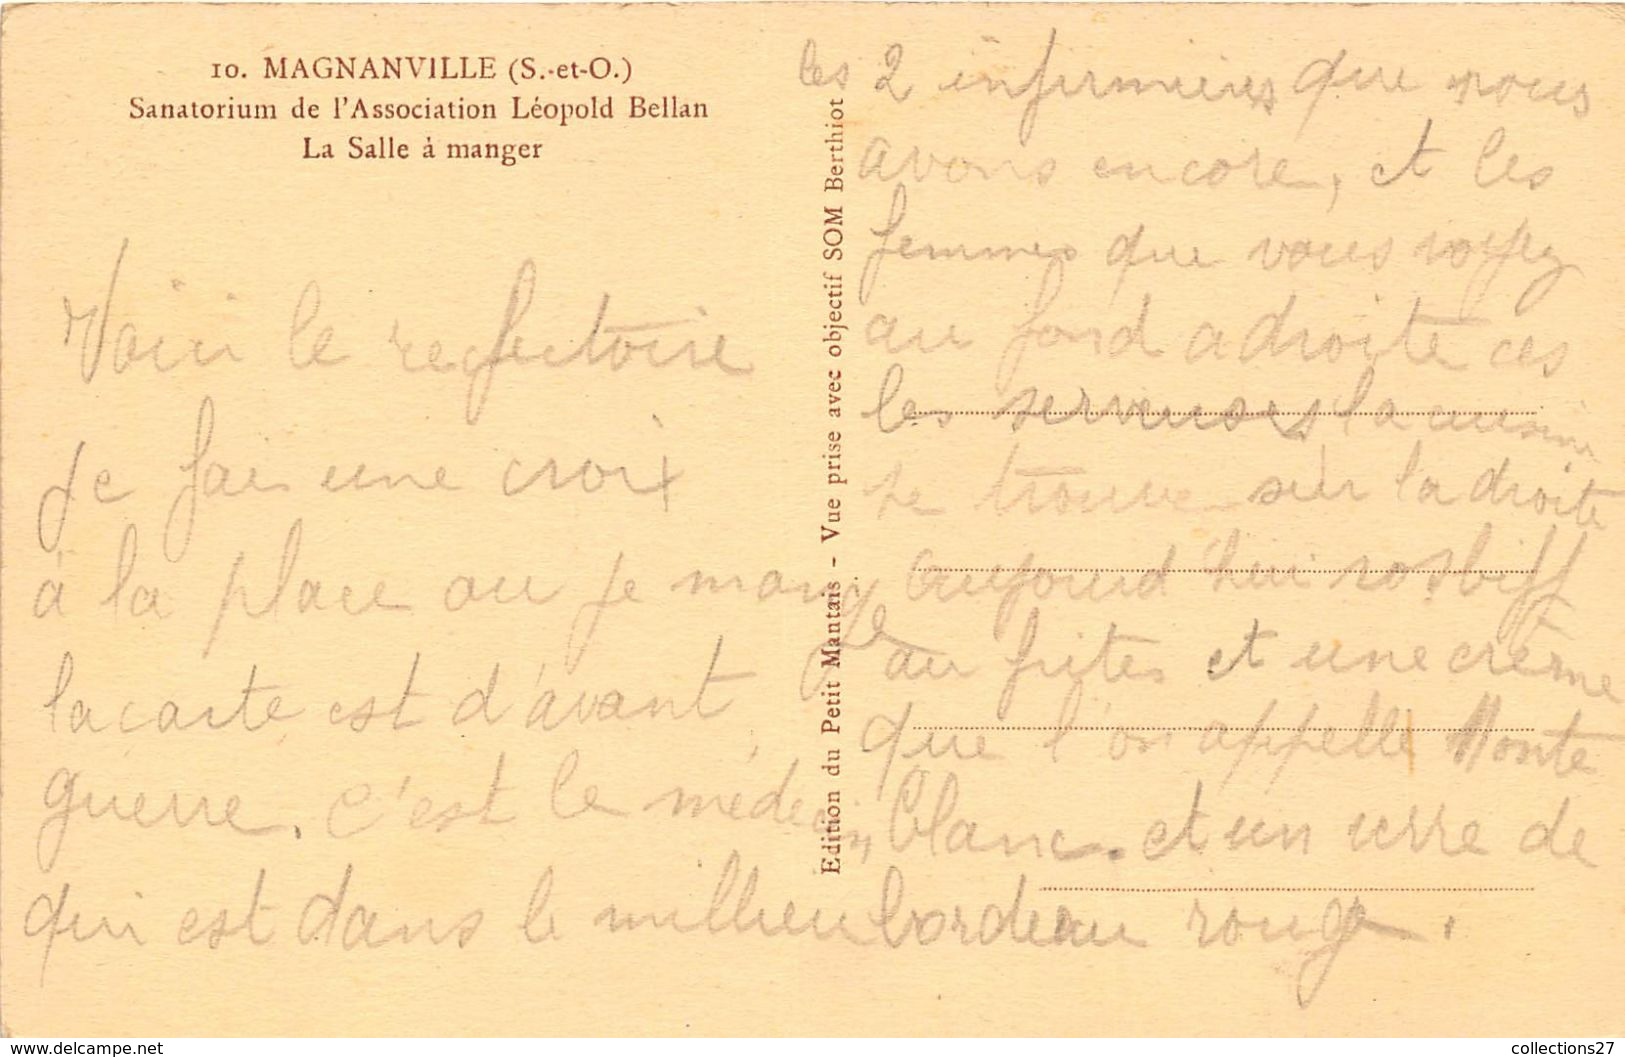 10. MAGNANVILLE (S.-et-O.)
Sanatorium de l'Association Léopold Bellan
La Salle à manger
Voici le refectoire
je fais une croix
à la place ou je mange
la carte est d'avant
guerre. c'est le médecin
qui est dans le millieu
Edition du Petit Mantais - Vue prise avec objectif SOM Berthiot
les 2 infirmieres que nous
avons encore, et les
femmes que vous voyez
au fond a droite ces
les serveuses la cuisine
se trouve sur la droite
aujourd'hui rosbiff
au frites et une crème
que l'on appelle Monte
blanc. et un verre de
bordeau rouge.
www.delcampe.net
collections27